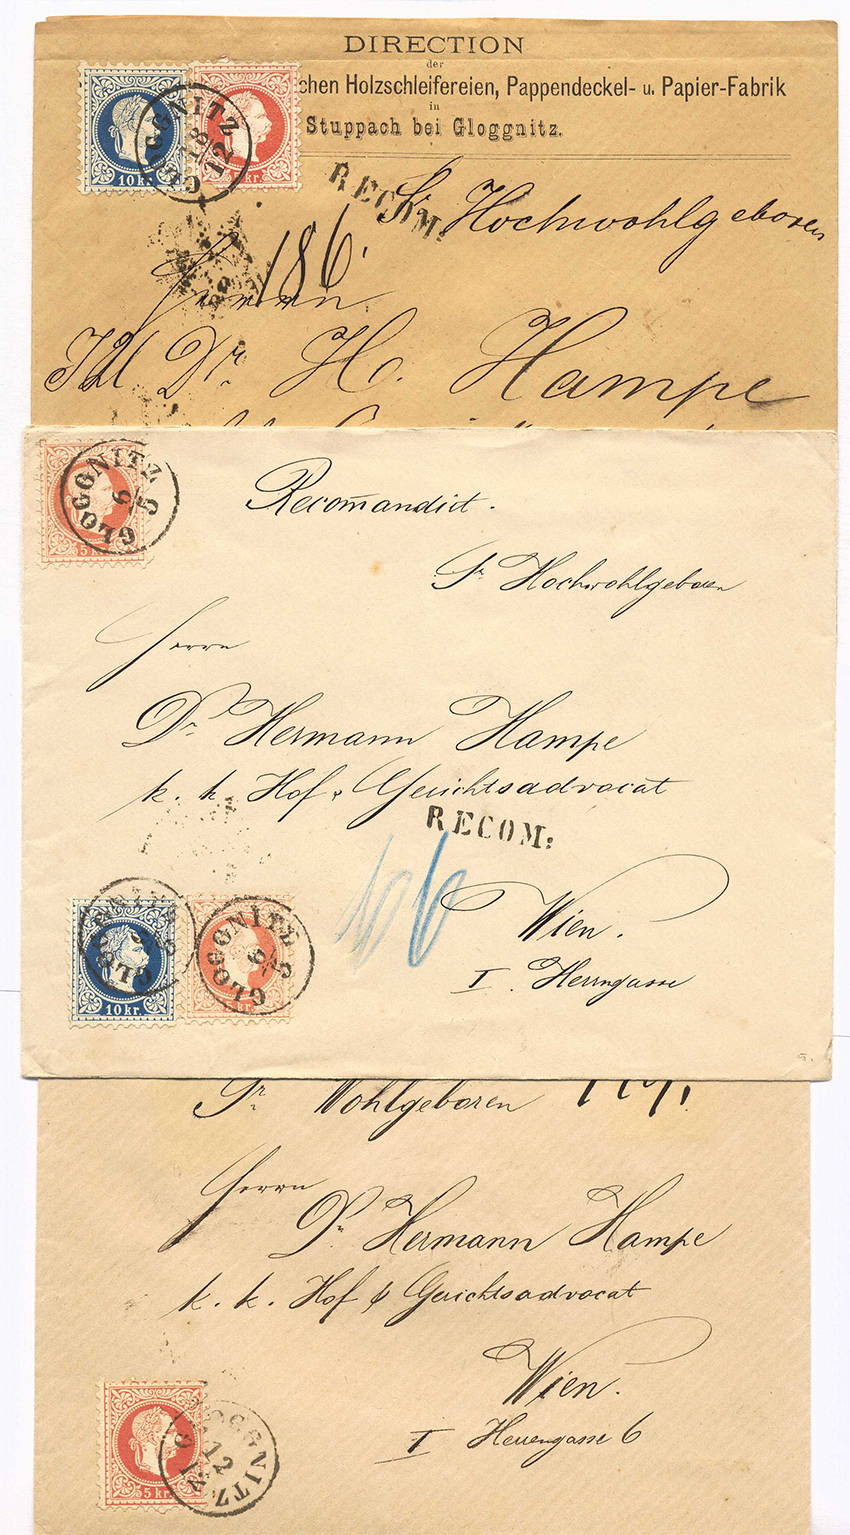 DIRECTION
der
chen Holzschleifereien, Pappendeckel- u. Papier-Fabrik
in
Stuppach bei Gloggnitz.
10 kr. 5 kr.
GLOGGNITZ
18/12
RECOM:
Sr. Hochwohlgeboren
186.
Herrn
Dr. H. Hampe
GLOGGNITZ
6/5
5 kr.
Recom̅andirt.
Sr. Hochwohlgeboren
Herrn
Dr. Hermann Hampe
k. k. Hof & Gerichtsadvocat
RECOM:
66
Wien.
I. Herrngasse
GLOGGNITZ
10 kr.
GLOGGNITZ
6/5
kr.
Sr. Wohlgeboren
Herrn
Dr. Hermann Hampe
k. k. Hof & Gerichtsadvocat
Wien.
I Herrengasse 6
5 kr.
GLOGGNITZ
12